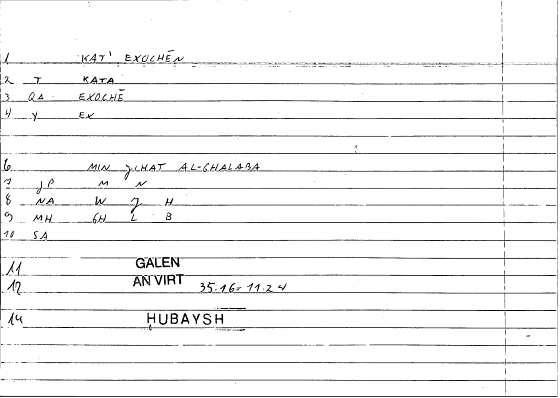 1 KAT' EXOCHĒN
2 T KATA
3 QA EXOCHĒ
4 Y EX
6 MIN ǧIHAT AL-GHALABA
7 ǧP M N
8 NA W ǧ H
9 MH GH L B
10 SA
11 GALEN
12 AN VIRT 35.16= 11.24
14 HUBAYSH